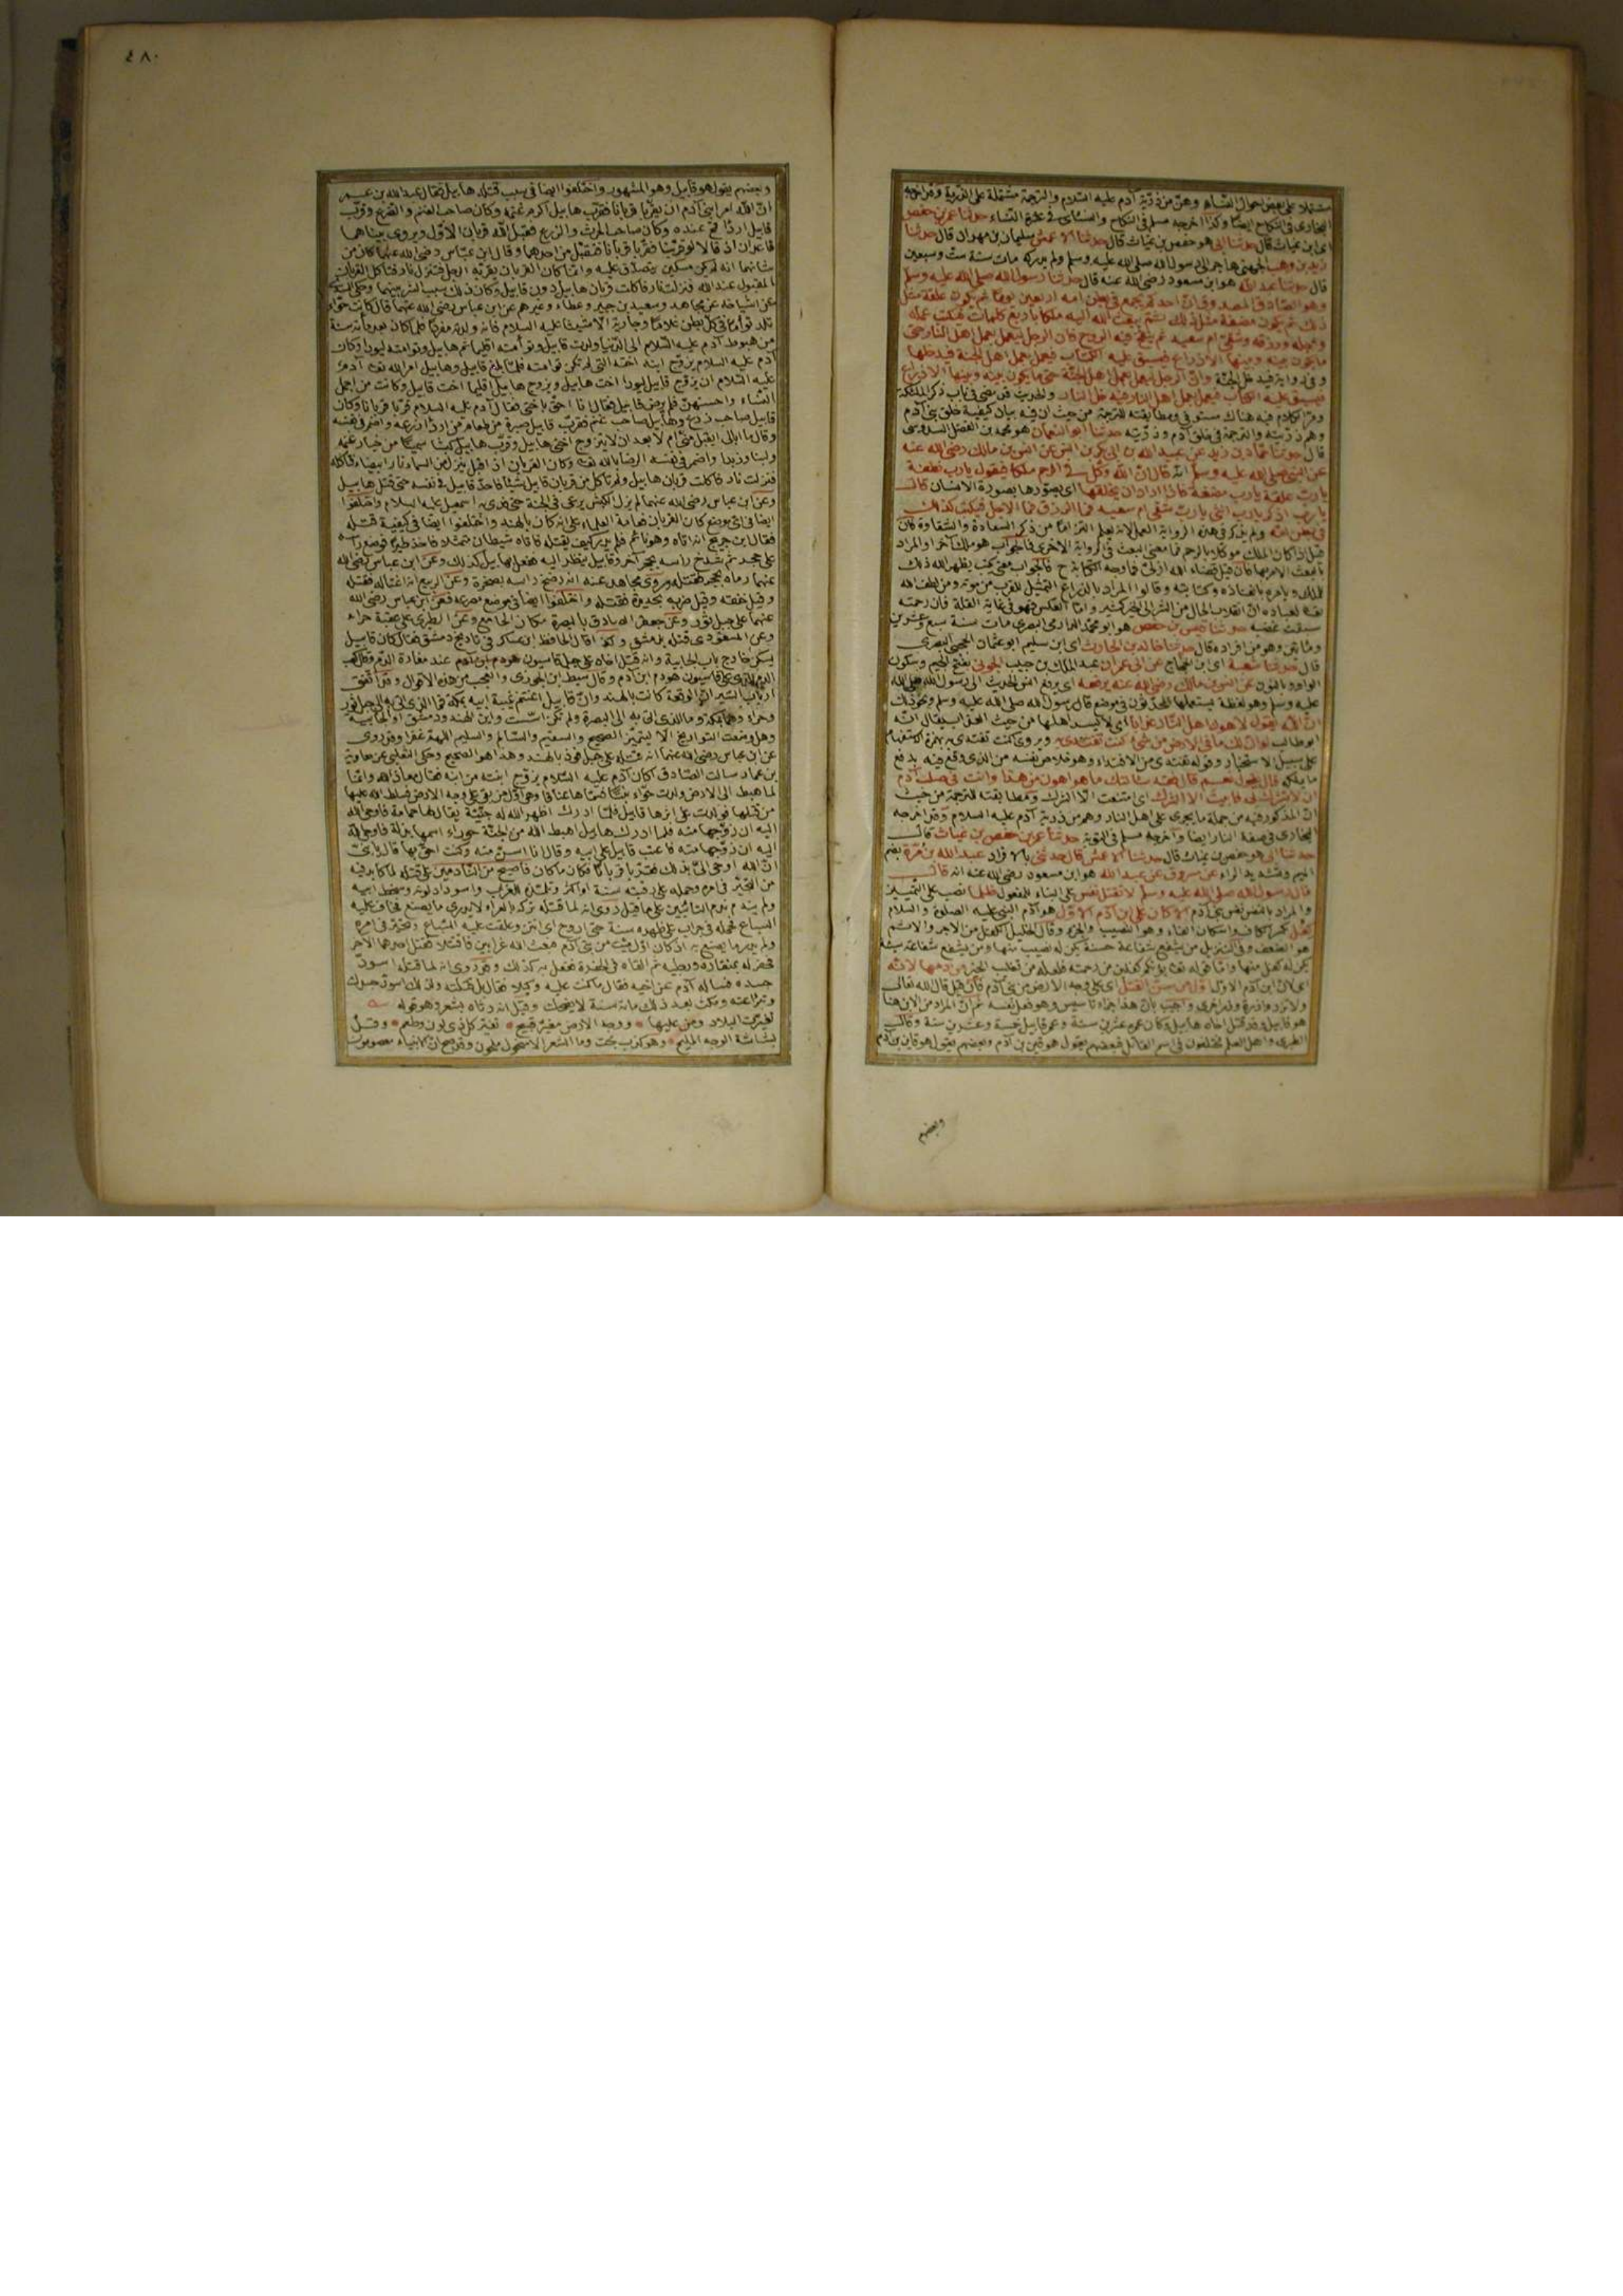 مشتملا على بعض احوال النساء وهن من ذرية آدم عليه السلام والترجمة مشتملة على الذرية وقد اخرجه
البخارى فى النكاح ايضا وكذا اخرجه مسلم فى النكاح والنسائى فى عشرة النساء حدثنا عمر بن حفص
اى ابن غياث قال حدثنا ابى هو حفص بن غياث قال حدثنا الاعمش سليمان بن مهران قال حدثنا
زيد بن وهب الجهنى هاجر الى رسول الله صلى الله عليه وسلم ولم يدركه مات سنة ست وتسعين
قال حدثنا عبد الله هو ابن مسعود رضى الله عنه قال حدثنا رسول الله صلى الله عليه وسلم
وهو الصادق المصدوق ان احدكم يجمع فى بطن امه اربعين يوما ثم يكون علقة مثل
ذلك ثم يكون مضغة مثل ذلك ثم يبعث الله اليه ملكا باربع كلمات فيكتب عمله
واجله ورزقه وشقى ام سعيد ثم ينفخ فيه الروح فان الرجل ليعمل بعمل اهل النار حتى
ما يكون بينه وبينها الا ذراع فيسبق عليه الكتاب فيعمل بعمل اهل الجنة فيدخلها
وفى رواية فيدخل الجنة وان الرجل ليعمل بعمل اهل الجنة حتى ما يكون بينه وبينها الا ذراع
فيسبق عليه الكتاب فيعمل بعمل اهل النار فيدخل النار والحديث قد مضى فى باب ذكر الملائكة
ومر الكلام فيه هناك مستوفى ومطابقته للترجمة من حيث ان فيه بيان كيفية خلق بنى آدم
وهم ذريته والترجمة فى خلق آدم وذريته حدثنا ابو النعمان هو محمد بن الفضل السدوسى
قال حدثنا حماد بن زيد عن عبيد الله بن ابى بكر بن انس عن انس بن مالك رضى الله عنه
عن النبى صلى الله عليه وسلم انه قال ان الله وكل فى الرحم ملكا فيقول يا رب نطفة
يا رب علقة يا رب مضغة فاذا اراد ان يخلقها اى يصورها بصورة الانسان قال
يا رب اذكر يا رب انثى يا رب شقى ام سعيد فما الرزق فما الاجل فيكتب كذلك
فى بطن امه ولم يذكر فى هذه الرواية العمل لانه يعلم التزاما من ذكر السعادة والشقاوة فان
قيل اذا كان الملك موكلا بالرحم فما معنى البعث فى الرواية الاخرى فالجواب هو ملك آخر او المراد
بالبعث الامر بها فان قيل قضاء الله ازلى فما وجه الكتابة ح فالجواب معنى يكتب يظهر الله ذلك
للملك ويأمره بانفاذه وكتابته وقالوا المراد بالذراع التمثيل للقرب من موته ومن لطف الله
تعالى بعباده ان انقلاب الحال من الشر الى الخير كثير واما العكس فهو فى غاية القلة فان رحمته
سبقت غضبه حدثنا قيس بن حفص هو ابو محمد الدارمى البصرى مات سنة سبع وعشرين
ومائتين وهو من افراده قال حدثنا خالد بن الحارث اى ابن سليم ابو عثمان الهجيمى البصرى
قال حدثنا شعبة اى ابن الحجاج عن ابى عمران عبد الملك بن حبيب الجونى بفتح الجيم وسكون
الواو وبالنون عن انس بن مالك رضى الله عنه يرفعه اى يرفع انس الحديث الى رسول الله صلى الله
عليه وسلم وهو لفظة يستعملها المحدثون فى موضع قال رسول الله صلى الله عليه وسلم ونحو ذلك
ان الله يقول لاهون اهل النار عذابا اى لايسر اهلها من حيث العذاب يقال انه
ابو طالب لو ان لك ما فى الارض من شىء كنت تفتدى به ويروى اكنت تفتدى به بهمزة الاستفهام
على سبيل الاستخبار وقوله تفتدى من الافتداء وهو خلاص نفسه من الذى وقع فيه بدفع
ما يملكه قال فيقول نعم قال فقد سألتك ما هو اهون من هذا وانت فى صلب آدم
ان لا تشرك بى فابيت الا الشرك اى امتنعت الا الشرك ومطابقته للترجمة من حيث
ان المذكور فيه من جملة ما يجرى على اهل النار وهم من ذرية آدم عليه السلام وقد اخرجه
البخارى فى صفة النار ايضا واخرجه مسلم فى التوبة حدثنا عمر بن حفص بن غياث قال
حدثنا ابى هو حفص بن غياث قال حدثنا الاعمش قال حدثنى بالافراد عبد الله بن مرة بضم
الميم وتشديد الراء عن مسروق عن عبد الله هو ابن مسعود رضى الله عنه انه قال
قال رسول الله صلى الله عليه وسلم لا تقتل نفس على البناء للمفعول ظلما نصب على التمييز
والمراد بالنفس نفس بنى آدم الا كان على ابن آدم الاول هو آدم النبى عليه الصلوة والسلام
كفل بكسر الكاف واسكان الفاء وهو النصيب والجزء وقال الخليل الكفل من الاجر والاثم
هو الضعف وفى التنزيل من يشفع شفاعة حسنة يكن له نصيب منها ومن يشفع شفاعة سيئة
يكن له كفل منها واما قوله تعالى يؤتكم كفلين من رحمته فلعله من تغليب الخير من دمها لانه
اى لان ابن آدم الاول اول من سن القتل اى على وجه الارض من بنى آدم فان قيل قال الله تعالى
ولا تزر وازرة وزر اخرى واجيب بان هذا جزاء تأسيس وهو فعل نفسه ثم ان المراد من الابن هنا
هو قابيل وقد قتل اخاه هابيل وكان عمره عشرين سنة وعمر قابيل خمسة وعشرين سنة وقال
الطبرى واهل العلم مختلفون فى اسم القاتل فبعضهم يقول هو قين بن آدم وبعضهم يقول هو قاين بن آدم
وبعضهم
٤٨٠
وبعضهم يقول هو قابيل وهو المشهور واختلفوا ايضا فى سبب قتله هابيل فقال عبد الله بن عمر
ان الله امر ابنى آدم ان يقربا قربانا فقرب هابيل اكرم غنمه وكان صاحب الغنم والضرع وقرب
قابيل اردأ قمح عنده وكان صاحب الحرث والزرع فقبل الله قربان الاول ويروى بينا هما
قاعدان اذ قالا لو قربنا فقربا قربانا فتقبل من احدهما وقال ابن عباس رضى الله عنهما كان من
شانهما انه لم يكن مسكين يتصدق عليه وانما كان القربان يقربه الرجل فتنزل نار فتاكل القربان
المقبول عند الله فنزلت نار فاكلت قربان هابيل دون قابيل وكان ذلك سبب الشر بينهما وحكى السدى
عن اشياخه عن مجاهد وسعيد بن جبير وعطاء وغيرهم عن ابن عباس رضى الله عنهما قال كانت حواء
تلد توأما فى كل بطن غلاما وجارية الا شيثا عليه السلام فانه ولدته مفردا فلما كان بعد مائة سنة
من هبوط آدم عليه السلام الى الدنيا ولدت قابيل وتوأمته اقليما ثم هابيل وتوأمته ليودا وكان
آدم عليه السلام يزوج ابنه اخته التى لم تكن توأمته فلما بلغ قابيل وهابيل امر الله تعالى آدم
عليه السلام ان يزوج قابيل ليودا اخت هابيل ويزوج هابيل اقليما اخت قابيل وكانت من اجمل
النساء واحسنهن فلم يرض قابيل فقال انا احق باختى فقال آدم عليه السلام قربا قربانا وكان
قابيل صاحب زرع وهابيل صاحب غنم فقرب قابيل صبرة من طعام من اردأ زرعه واضمر فى نفسه
وقال ما ابالى ايقبل منى ام لا بعد ان لا يتزوج اختى هابيل وقرب هابيل كبشا سمينا من خيار غنمه
ولبنا وزبدا واضمر فى نفسه الرضا بالله تعالى وكان القربان اذا قبل ينزل من السماء نار بيضاء فتاكله
فنزلت نار فاكلت قربان هابيل ولم تاكل من قربان قابيل شيئا فاخذ قابيل فى نفسه حتى قتل هابيل
وعن ابن عباس رضى الله عنهما لم يزل الكبش يرعى فى الجنة حتى فدى به اسمعيل عليه السلام واختلفوا
ايضا فى اى موضع كان القربان فعامة العلماء على انه كان بالهند واختلفوا ايضا فى كيفية قتله
فقال ابن جريج انه اتاه وهو نائم فلم يدر كيف يقتله فاتاه شيطان متمثلا فاخذ طيرا فوضع رأسه
على حجر ثم شدخ رأسه بحجر آخر وقابيل ينظر اليه ففعل بهابيل كذلك وعن ابن عباس رضى الله
عنهما رماه بحجر فقتله وروى مجاهد عنه انه رضخ رأسه بصخرة وعن الربيع انه اغتاله فقتله
وقيل خنقه وقيل ضربه بحديدة فقتله واختلفوا ايضا فى موضع مصرعه فعن ابن عباس رضى الله
عنهما على جبل ثور وعن جعفر الصادق بالبصرة مكان الجامع وعن الطبرى على عقبة حراء
وعن المسعودى قتله بدمشق وكذا قال الحافظ ابن عساكر فى تاريخ دمشق فقال كان قابيل
يسكن خارج باب الجابية وانه قتل اخاه على جبل قاسيون عند مغارة الدم وقال كعب
الدم الذى على قاسيون هو دم ابن آدم وقال سبط ابن الجوزى والعجب من هذه الاقوال وقد اتفق
ارباب السير ان الواقعة كانت بالهند وان قابيل اغتنم غيبة ابيه بمكة فما الذى اتى به الى جبل ثور
وحراء وهما بمكة وما الذى اتى به الى البصرة ولم تكن اسست واين الهند ودمشق او الجابية
وهل وضعت التواريخ الا ليتميز الصحيح والسقيم والسالم والسليم اللهم غفرا وقد روى
عن ابن عباس رضى الله عنهما انه قتله على جبل نوذ بالهند وهذا هو الصحيح وحكى الثعلبى عن معاوية
بن عمار سالت الصادق اكان آدم عليه السلام يزوج ابنته من ابنه فقال معاذ الله وانما
لما هبط الى الارض ولدت حواء بنتا فسماها عناقا وهى اول من بغى على وجه الارض فسلط الله عليها
من قتلها فولدت على اثرها قابيل فلما ادرك اظهر الله له جنية يقال لها حمامة فاوحى الله
اليه ان زوجها منه فلما ادرك هابيل اهبط الله من الجنة حوراء اسمها بذلة فاوحى الله
اليه ان زوجها منه فاعتب قابيل على ابيه وقال انا اسن منه وكنت احق بها قال يا بنى
ان الله اوحى الى بذلك فقربا قربانا فكان ما كان فاصبح من النادمين على قتله لما كابد فيه
من التحير فى امره وحمله على رقبته سنة او اكثر وتلمذه للغراب واسوداد لونه وسخط ابيه
ولم يندم ندم التائبين على ما قيل روى انه لما قتله تركه بالعراء لا يدرى ما يصنع فخاف عليه
السباع فحمله فى جراب على ظهره سنة حتى اروح اى انتن وعكفت عليه السباع وتحير فى امره
ولم يدر ما يصنع به اذ كان اول ميت من بنى آدم فبعث الله غرابين فاقتتلا فقتل احدهما الآخر
فحفر له بمنقاره ورجليه ثم القاه فى الحفرة ففعل به كذلك وقد روى انه لما قتله اسود
جسده فساله آدم عن اخيه فقال ما كنت عليه وكيلا فقال بل قتلته ولذلك اسود جسدك
وتبرأ عنه ومكث بعد ذلك مائة سنة لا يضحك وقيل انه رثاه بشعر وهو قوله
تغيرت البلاد ومن عليها • ووجه الارض مغبر قبيح • تغير كل ذى لون وطعم • وقل
بشاشة الوجه المليح • وهو كذب بحت وما الشعر الا منحول ملحون وقد صح ان الانبياء معصومون